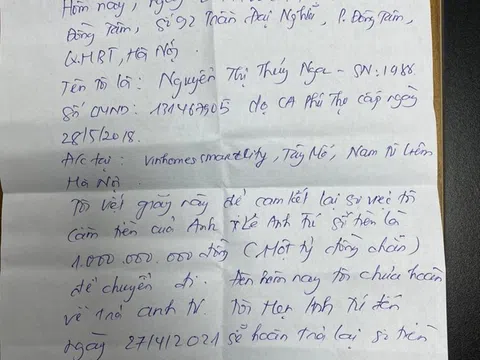 Hôm nay, ngày
Đồng Tâm, Số 92 Trần Đại Nghĩa, P. Đồng Tâm,
Q.HBT, Hà Nội.
Tên tôi là: Nguyễn Thị Thúy Nga - SN: 1986.
Số CMND: 131467905 do CA Phú Thọ cấp ngày
28/5/2018.
Đ/c tại: Vinhomes smartcity, Tây Mỗ, Nam Từ Liêm
Hà Nội
Tôi viết giấy này để cam kết lại sự việc tôi
cầm tiền của Anh Lê Anh Tú số tiền là
1.000.000.000 đồng (Một tỷ đồng chẵn)
để chuyển đi. Đến hôm nay tôi chưa hoàn
về trả anh Tú. Tôi Hẹn Anh Tú đến
ngày 27/4/2021 sẽ hoàn trả lại số tiền